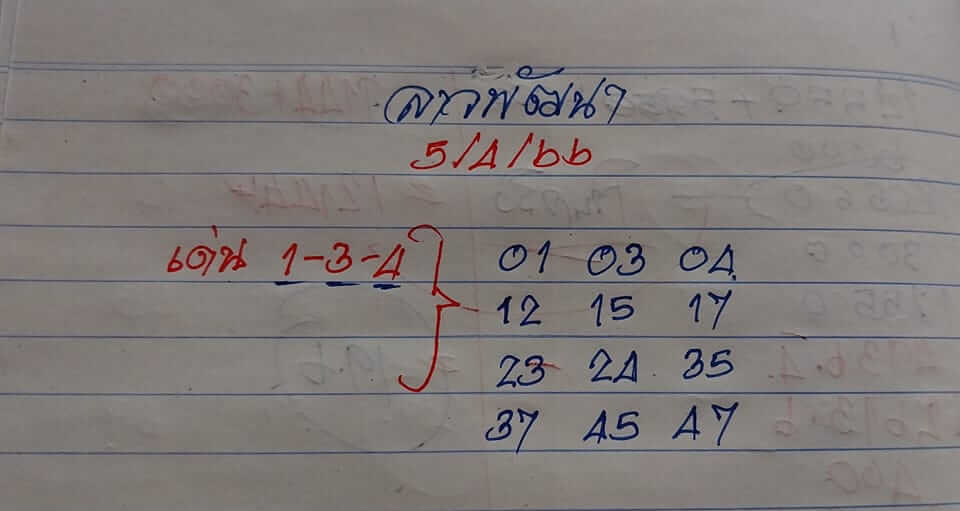 ลาวพัฒนา
5/4/66
เด่น 1-3-4 01 03 04
12 15 17
23 24 35
37 45 47